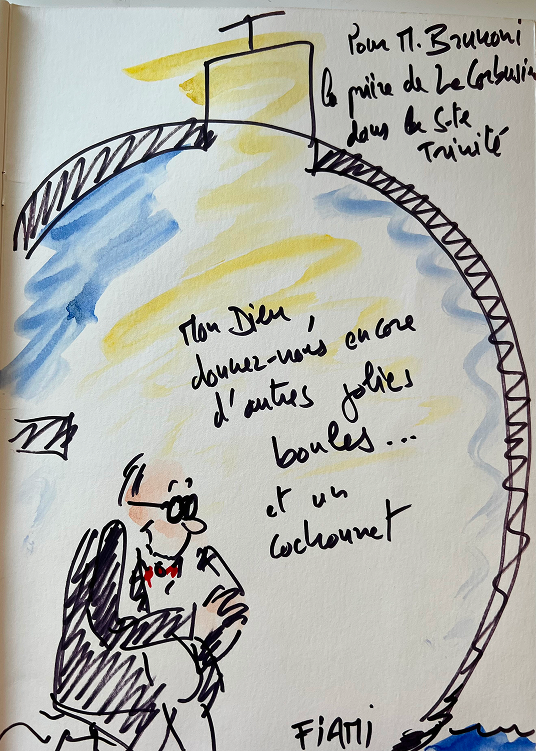 Pour M. Brunoni
la prière de Le Corbusier
dans la Ste
Trinité
Mon Dieu,
donnez-nous encore
d'autres jolies
boules...
et un
cochonnet
FiAMi